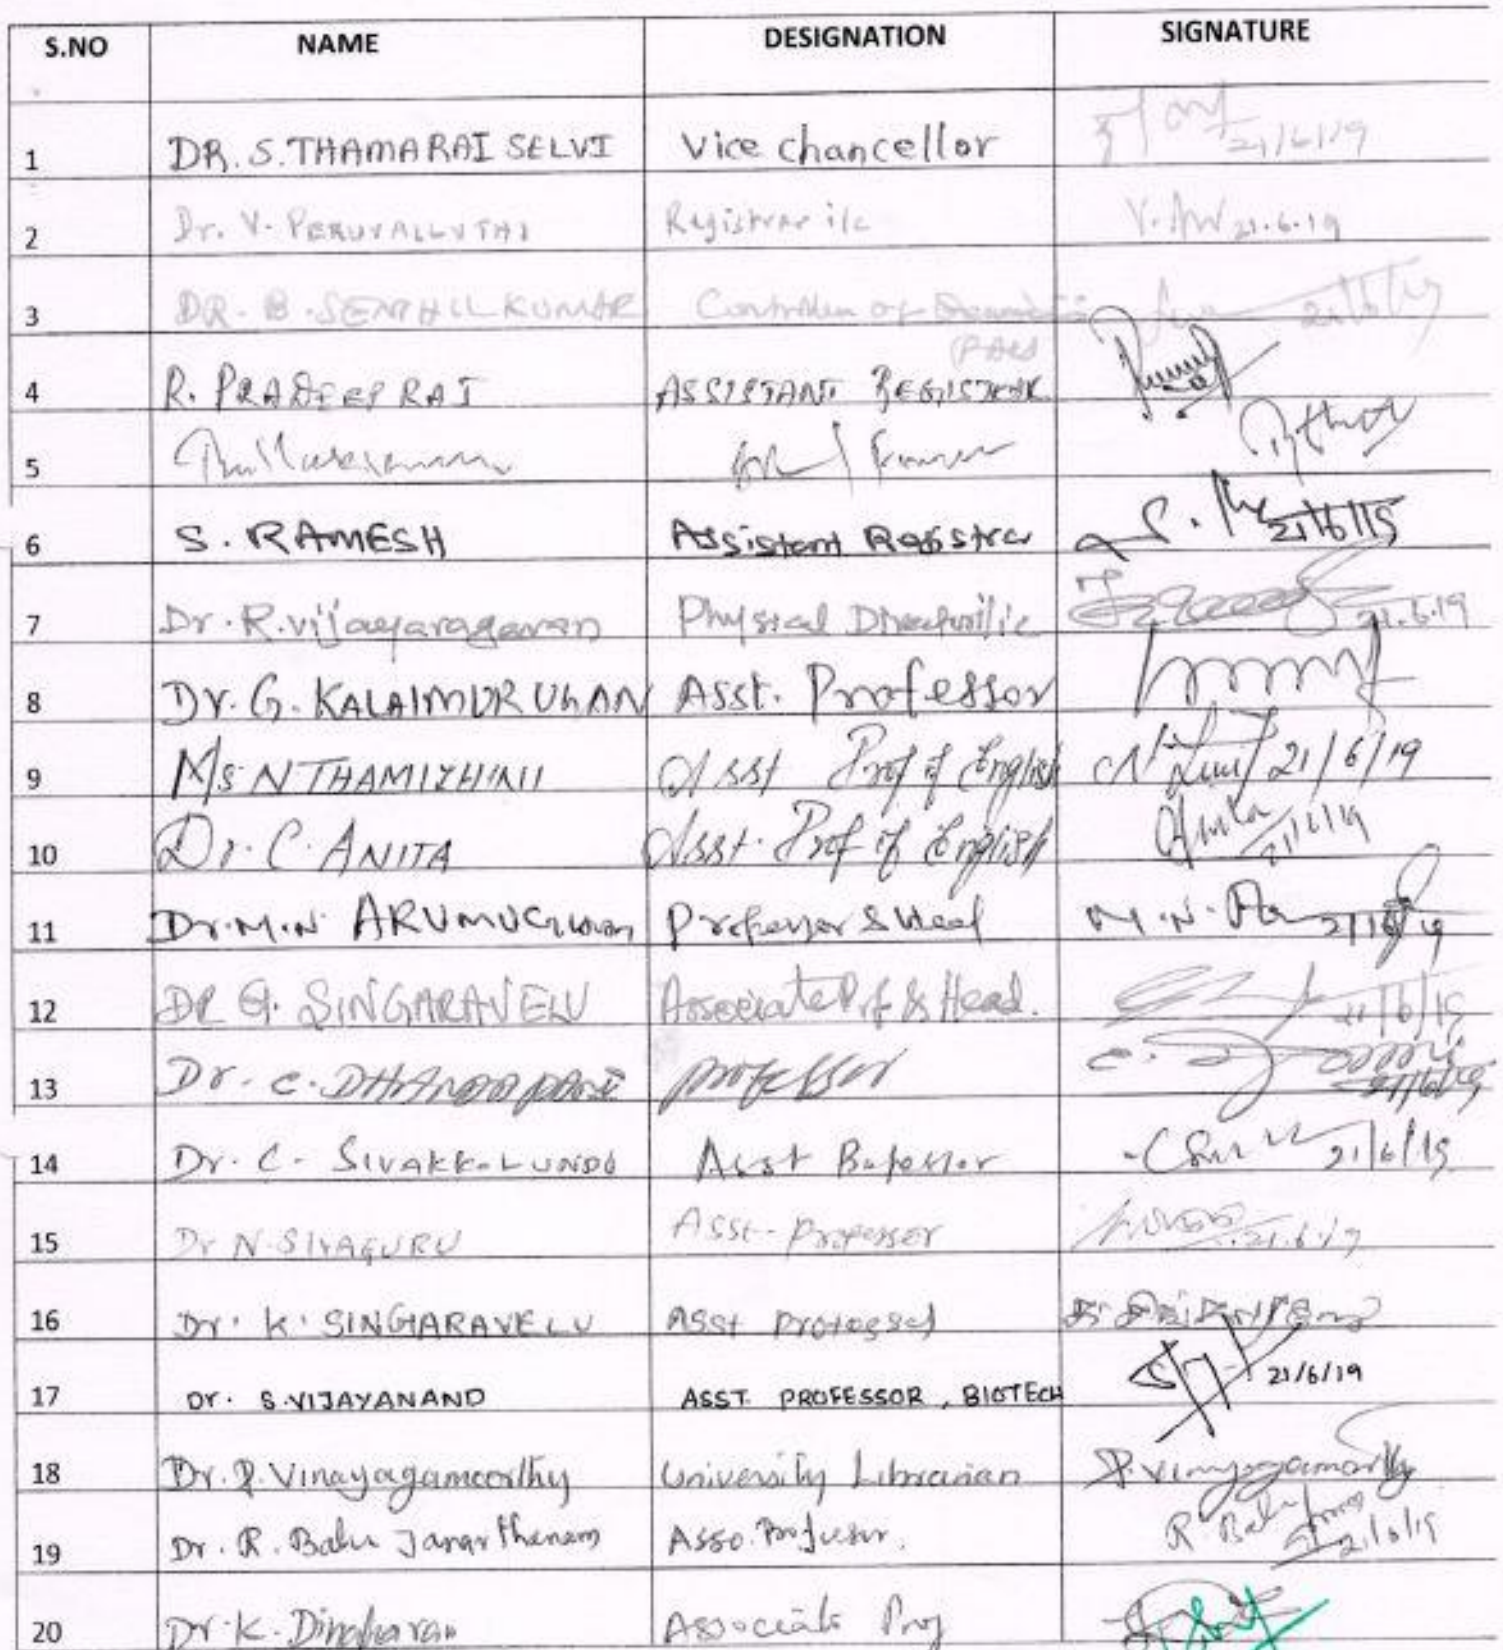 S.NO NAME DESIGNATION SIGNATURE
1 DR. S. THAMARAI SELVI Vice chancellor 21/6/19
2 Dr. V. PERUVALLUTHI Registrar i/c 21.6.19
3 DR. B. SENTHIL KUMAR Controller of 21/6/19
4 R. PRADEEP RAJ ASSISTANT REGISTRAR
5
6 S. RAMESH Assistant Registrar 21/6/19
7 Dr. R. vijayaragavan Physical Director i/c 21.6.19
8 Dr. G. KALAIMURUGAN Asst. Professor
9 Ms N THAMIZHINII Asst Prof of English 21/6/19
10 Dr. C. ANITA Asst. Prof of English 21/6/19
11 Dr. M. N. ARUMUGHAM Professor & Head M. N. 21/6/19
12 DR G. SINGARAVELU Associate Prof & Head. 21/6/19
13 Dr. C. DHANDAPANI professor 21/6/19
14 Dr. C. Asst Professor 21/6/19
15 Dr N. SIVAGURU Asst. Professor 21.6.19
16 Dr. K. SINGARAVELU Asst Professor
17 Dr. S. VIJAYANAND ASST. PROFESSOR, BIOTECH 21/6/19
18 Dr. P. Vinayagamoorthy University Librarian P. Vinayagamoorthy
19 Dr. R. Babu Janarthanam Asso. Professor. R Babu 21/6/19
20 Dr. K. Dinakaran Associate Prof